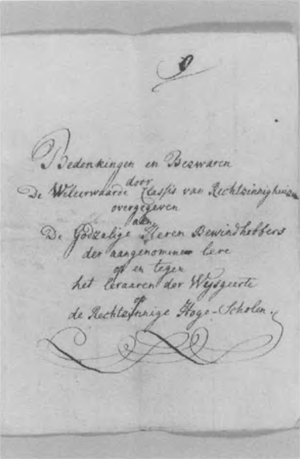 Bedenkingen en Beswaren
door
De Wileerwaarde Classis van Rechtzinnigheid
overgegeven
aan
De Godzalige Heeren Bewindhebbers
der aangenomene lere
op en tegen
het leraaren der Wysgeerte
op
de Rechtzinnige Hoge-Scholen.